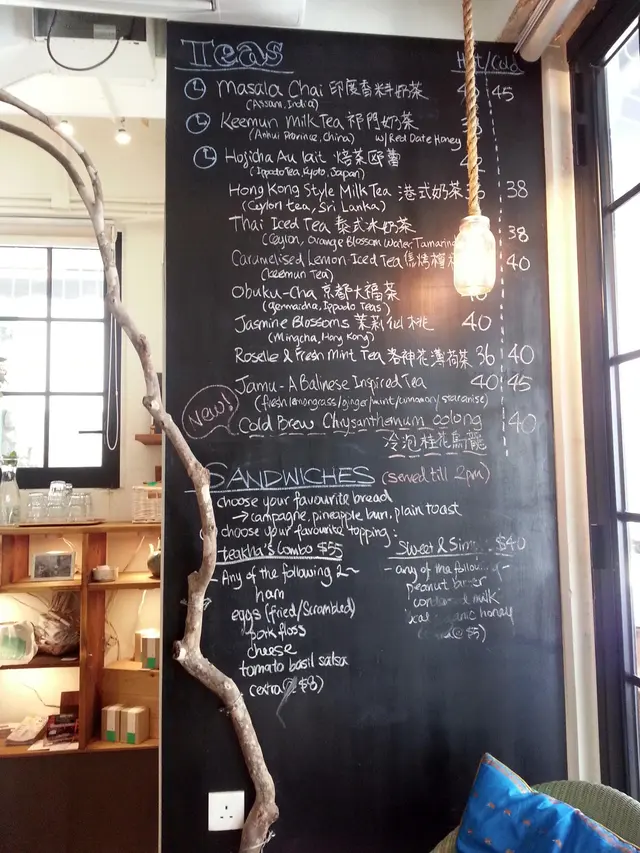 Teas Hot/Cold
Masala Chai 印度香料奶茶 45
(Assam, India)
Keemun Milk Tea 祁門奶茶
(Anhui Province, China) w/ Red Date Honey
Hojicha Au lait 焙茶歐蕾 42
(Ippodo Tea, Kyoto, Japan)
Hong Kong Style Milk Tea 港式奶茶 38
(Ceylon tea, Sri Lanka)
Thai Iced Tea 泰式冰奶茶 38
(Ceylon, Orange Blossom Water, Tamarind
Caramelised Lemon Iced Tea 焦烤檸 40
(Keemun Tea)
Obuku-Cha 京都大福茶
(genmaicha, Ippodo Teas)
Jasmine Blossoms 茉莉仙桃 40
(Mingcha, Hong Kong)
Roselle & Fresh Mint Tea 洛神花薄荷茶 36 40
Jamu - A Balinese Inspired Tea 40 45
(fresh lemongrass/ginger/mint/cinnamon/staranise)
New!
Cold Brew Chrysanthemum oolong 40
冷泡桂花烏龍
SANDWICHES (served till 2pm)
choose your favourite bread
→ campagne, pineapple bun, plain toast
choose your favourite topping:
teakha's combo $55
- Any of the following 2 -
ham
eggs (fried/scrambled)
pork floss
cheese
tomato basil salsa
(extra @ $8)
Sweet & $40
- any of the
peanut butter
milk
honey
$5)